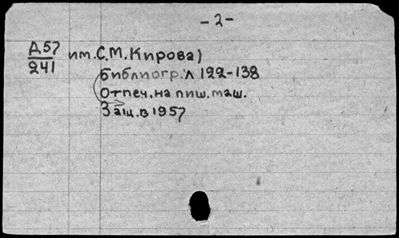 - 2 -
Д57 им. С.М. Кирова)
241
Библиогр. л 122-138
Отпеч. на пиш. маш.
Защ. в 1957